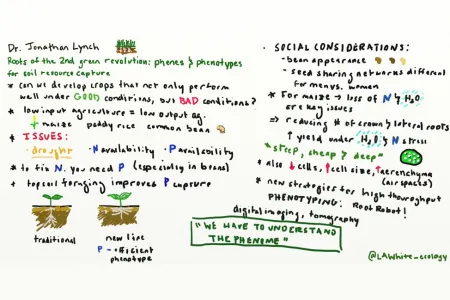 Dr. Jonathan Lynch
Roots of the 2nd green revolution: phenes & phenotypes
for soil resource capture
* Can we develop crops that not only perform
well under GOOD conditions, but BAD conditions?
* low input agriculture = low output ag.
↓ maize paddy rice common bean
* ISSUES:
· drought · N availability · P availability
* to fix N, you need P (especially in beans)
* topsoil foraging improves P capture
traditional
new line
P-efficient
phenotype
· SOCIAL CONSIDERATIONS:
- bean appearance
- seed sharing networks different
for men vs. women
* For maize → loss of N & H2O
are key issues
⇒ reducing # of crown & lateral roots
↑ yield under H2O & N stress
"steep, cheap & deep"
* also ↓ cells, ↑ cell size, ↑ aerenchyma
(air spaces)
* new strategies for high throughput
PHENOTYPING: Root Robot!
digital imaging, tomography
"WE HAVE TO UNDERSTAND
THE PHENOME"
@LAWhite_ecology